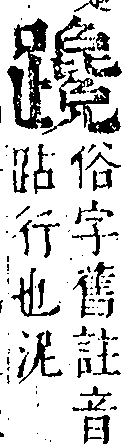 俗字舊註音
跕行也泥